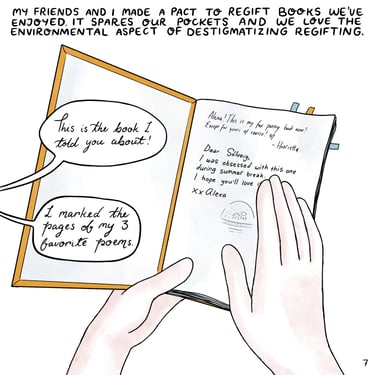 MY FRIENDS AND I MADE A PACT TO REGIFT BOOKS WE'VE
ENJOYED. IT SPARES OUR POCKETS AND WE LOVE THE
ENVIRONMENTAL ASPECT OF DESTIGMATIZING REGIFTING.
This is the book I
told you about!
I marked the
pages of my 3
favorite poems.
This is my fav poetry book ever!
Except for yours of course!
- Henriette
Dear Solveig,
I was obsessed with this one
during summer break.
I hope you'll love
xx Alexa
7